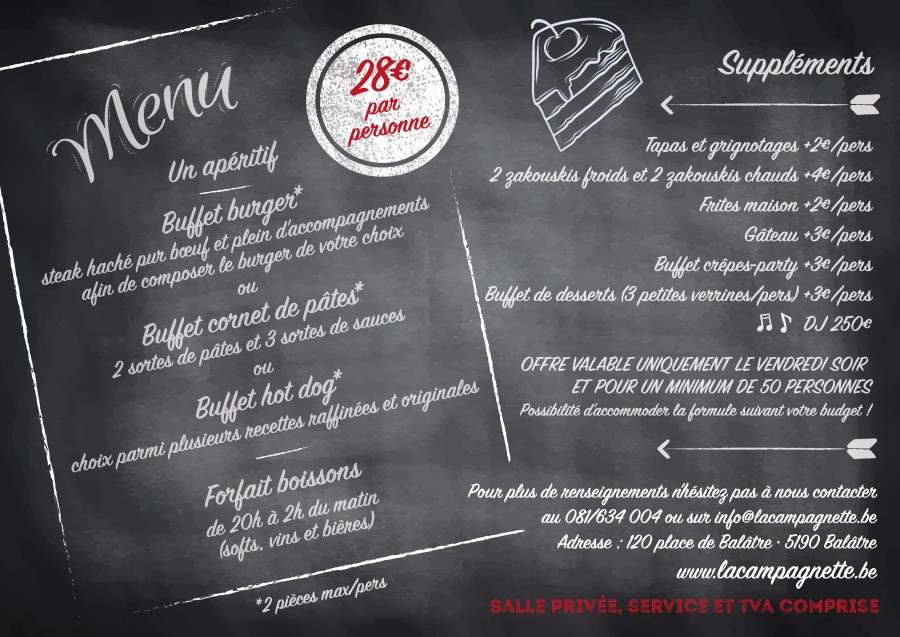 Menu
28€
par
personne
Un apéritif
Buffet burger*
steak haché pur bœuf et plein d'accompagnements
afin de composer le burger de votre choix
ou
Buffet cornet de pâtes*
2 sortes de pâtes et 3 sortes de sauces
ou
Buffet hot dog*
choix parmi plusieurs recettes raffinées et originales
Forfait boissons
de 20h à 2h du matin
(softs, vins et bières)
*2 pièces max/pers
Suppléments
Tapas et grignotages +2€/pers
2 zakouskis froids et 2 zakouskis chauds +4€/pers
Frites maison +2€/pers
Gâteau +3€/pers
Buffet crêpes-party +3€/pers
Buffet de desserts (3 petites verrines/pers) +3€/pers
DJ 250€
OFFRE VALABLE UNIQUEMENT LE VENDREDI SOIR
ET POUR UN MINIMUM DE 50 PERSONNES
Possibilité d'accommoder la formule suivant votre budget !
Pour plus de renseignements n'hésitez pas à nous contacter
au 081/634 004 ou sur info@lacampagnette.be
Adresse : 120 place de Balâtre · 5190 Balâtre
www.lacampagnette.be
SALLE PRIVÉE, SERVICE ET TVA COMPRISE